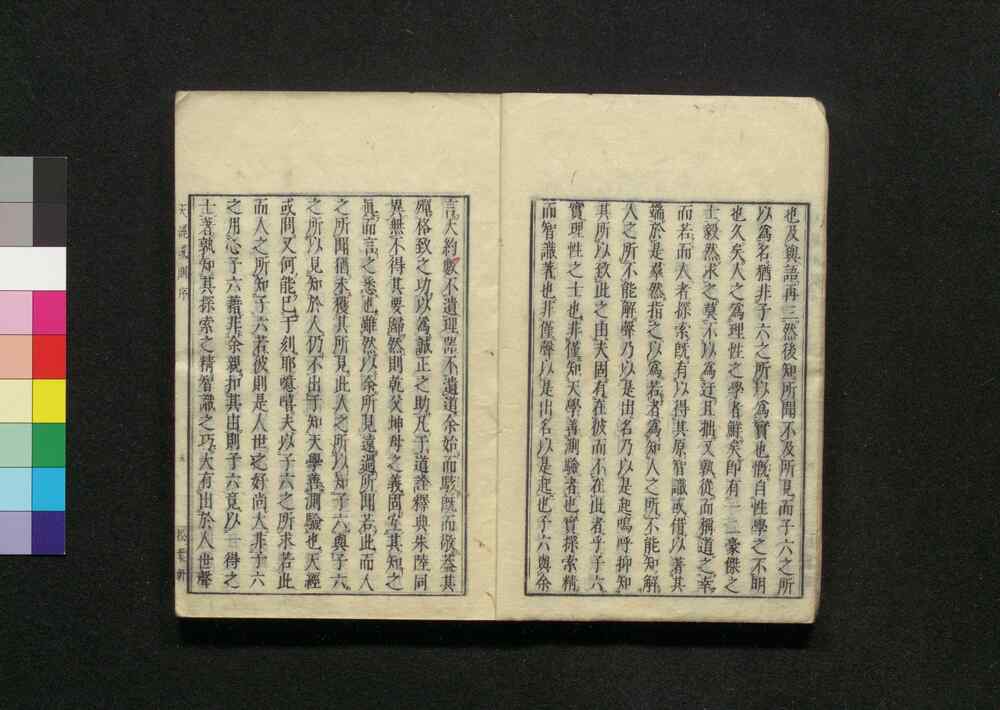 也及與語再三然後知所聞不及所見而子六之所
以為名猶非子六之所以為實也慨自性學之不明
也久矣人之為理性之學者鮮矣即有一二豪傑之
士毅然求之莫不以為迂且拙又孰從而稱道之幸
而若而人者探索既有以得其原智識或借以著其
端於是羣然指之以為若者為知人之所不能知解
人之所不能解聲乃以是出名乃以是起嗚呼抑知
其所以致此之由夫固有在彼而不在此者乎子六
實理性之士也非僅知天學善測驗者也實探索精
而智識著也非僅聲以是出名以是起也子六與余
言大約數不遺理器不遺道余始而駭既而敬蓋其
殫格致之功以為誠正之助凡于道詮釋典朱陸同
異無不得其要歸然則乾父坤母之義固宜其知之
真而言之悉也雖然以余所見遠過所聞若此而人
之所聞猶未獲其所見此人之所以知子六與子六
之所以見知於人仍不出于知天學善測驗也天經
或問又何能已于刻耶噫嘻夫以子六之所求若此
而人之所知子六若彼則是人世之好尚大非子六
之用心子六藉非余親扣其出則子六竟以一得之
士著孰知其探索之精智識之巧大有出於人世聲
天 序
松葉軒